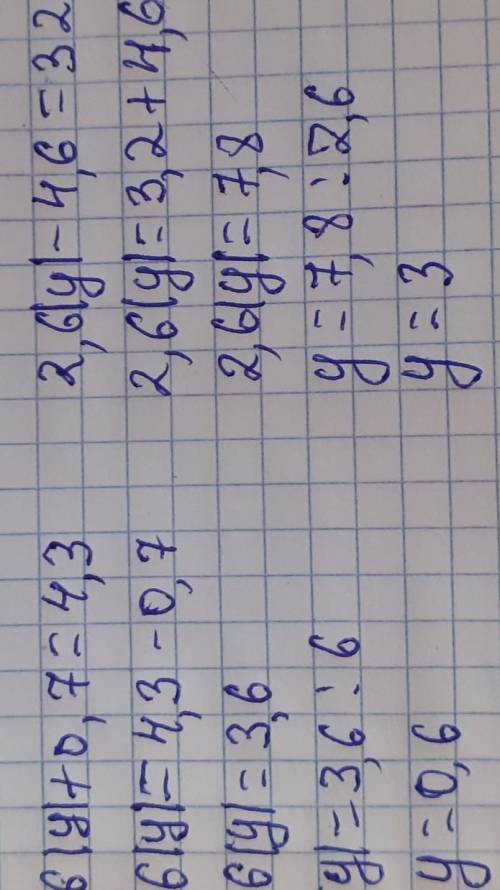 6|y|+0,7=4,3
6|y|=4,3-0,7
6|y|=3,6
y|=3,6:6
y=0,6
2,6|y|-4,6=32
2,6|y|=3,2+4,6
2,6|y|=7,8
y=7,8:2,6
y=3